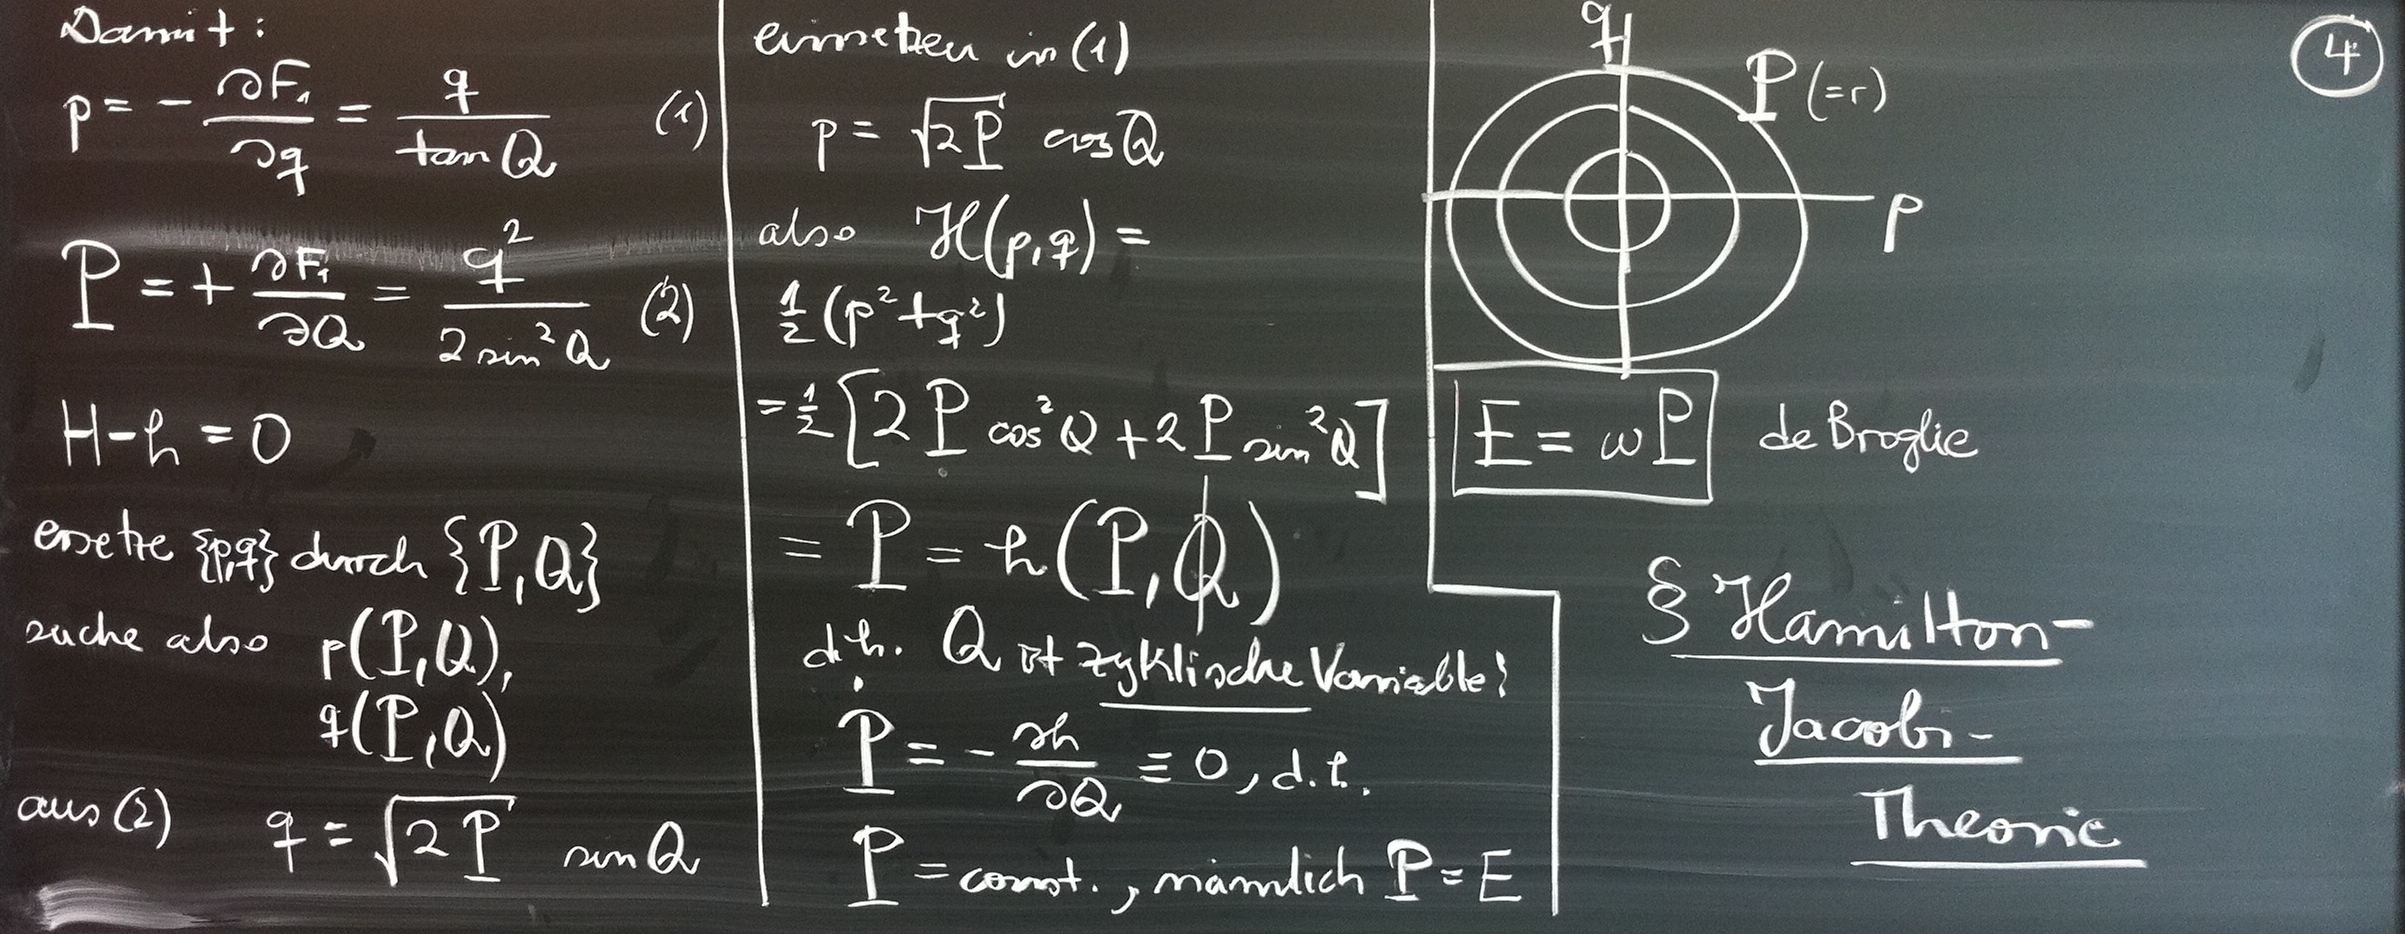 Damit:
p = - ∂F₁/∂q = q/tan Q (1)
P = + ∂F₁/∂Q = q²/2 sin² Q (2)
H-h = 0
ersetze {p,q} durch {P,Q}
suche also p(P,Q),
q(P,Q)
aus (2) q = √2P sin Q
einsetzen in (1)
p = √2P cos Q
also H(p,q) =
½ (p²+q²)
= ½ [2P cos²Q + 2P sin²Q]
= P = h(P,Q)
d.h. Q ist zyklische Variable!
Ṗ = - ∂h/∂Q ≡ 0, d.h.
P = const., nämlich P = E
q
P (=r)
p
E = ωP de Broglie
§ Hamilton-
Jacobi-
Theorie
4